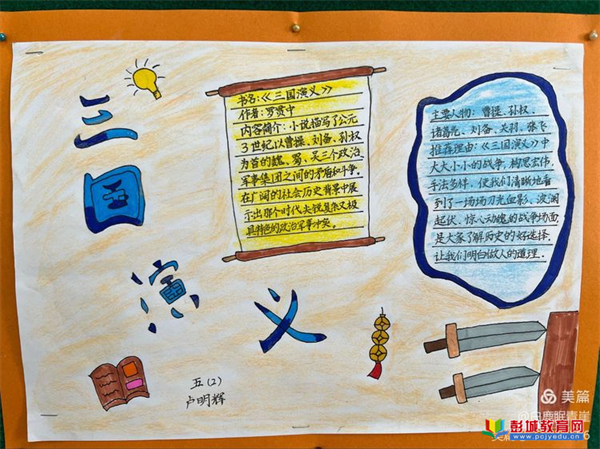 三国演义
书名:《三国演义》
作者:罗贯中
内容简介:小说描写了公元
3世纪以曹操、刘备、孙权
为首的魏、蜀、吴三个政治
军事集团之间的矛盾和斗争。
在广阔的社会历史背景中展
示出那个时代尖锐复杂又极
具特色的政治军事冲突。
主要人物:曹操、孙权、
诸葛亮、刘备、关羽、张飞
推荐理由:《三国演义》中
大大小小的战争,构思宏伟、
手法多样,使我们清晰地看
到了一场场刀光血影、波澜
起伏、惊人动魄的战争场面,
是大家了解历史的好选择,
让我们明白做人的道理。
五(2)
卢明辉
美篇
白鹿眠青崖
彭城教育网
www.pcjyedu.cn